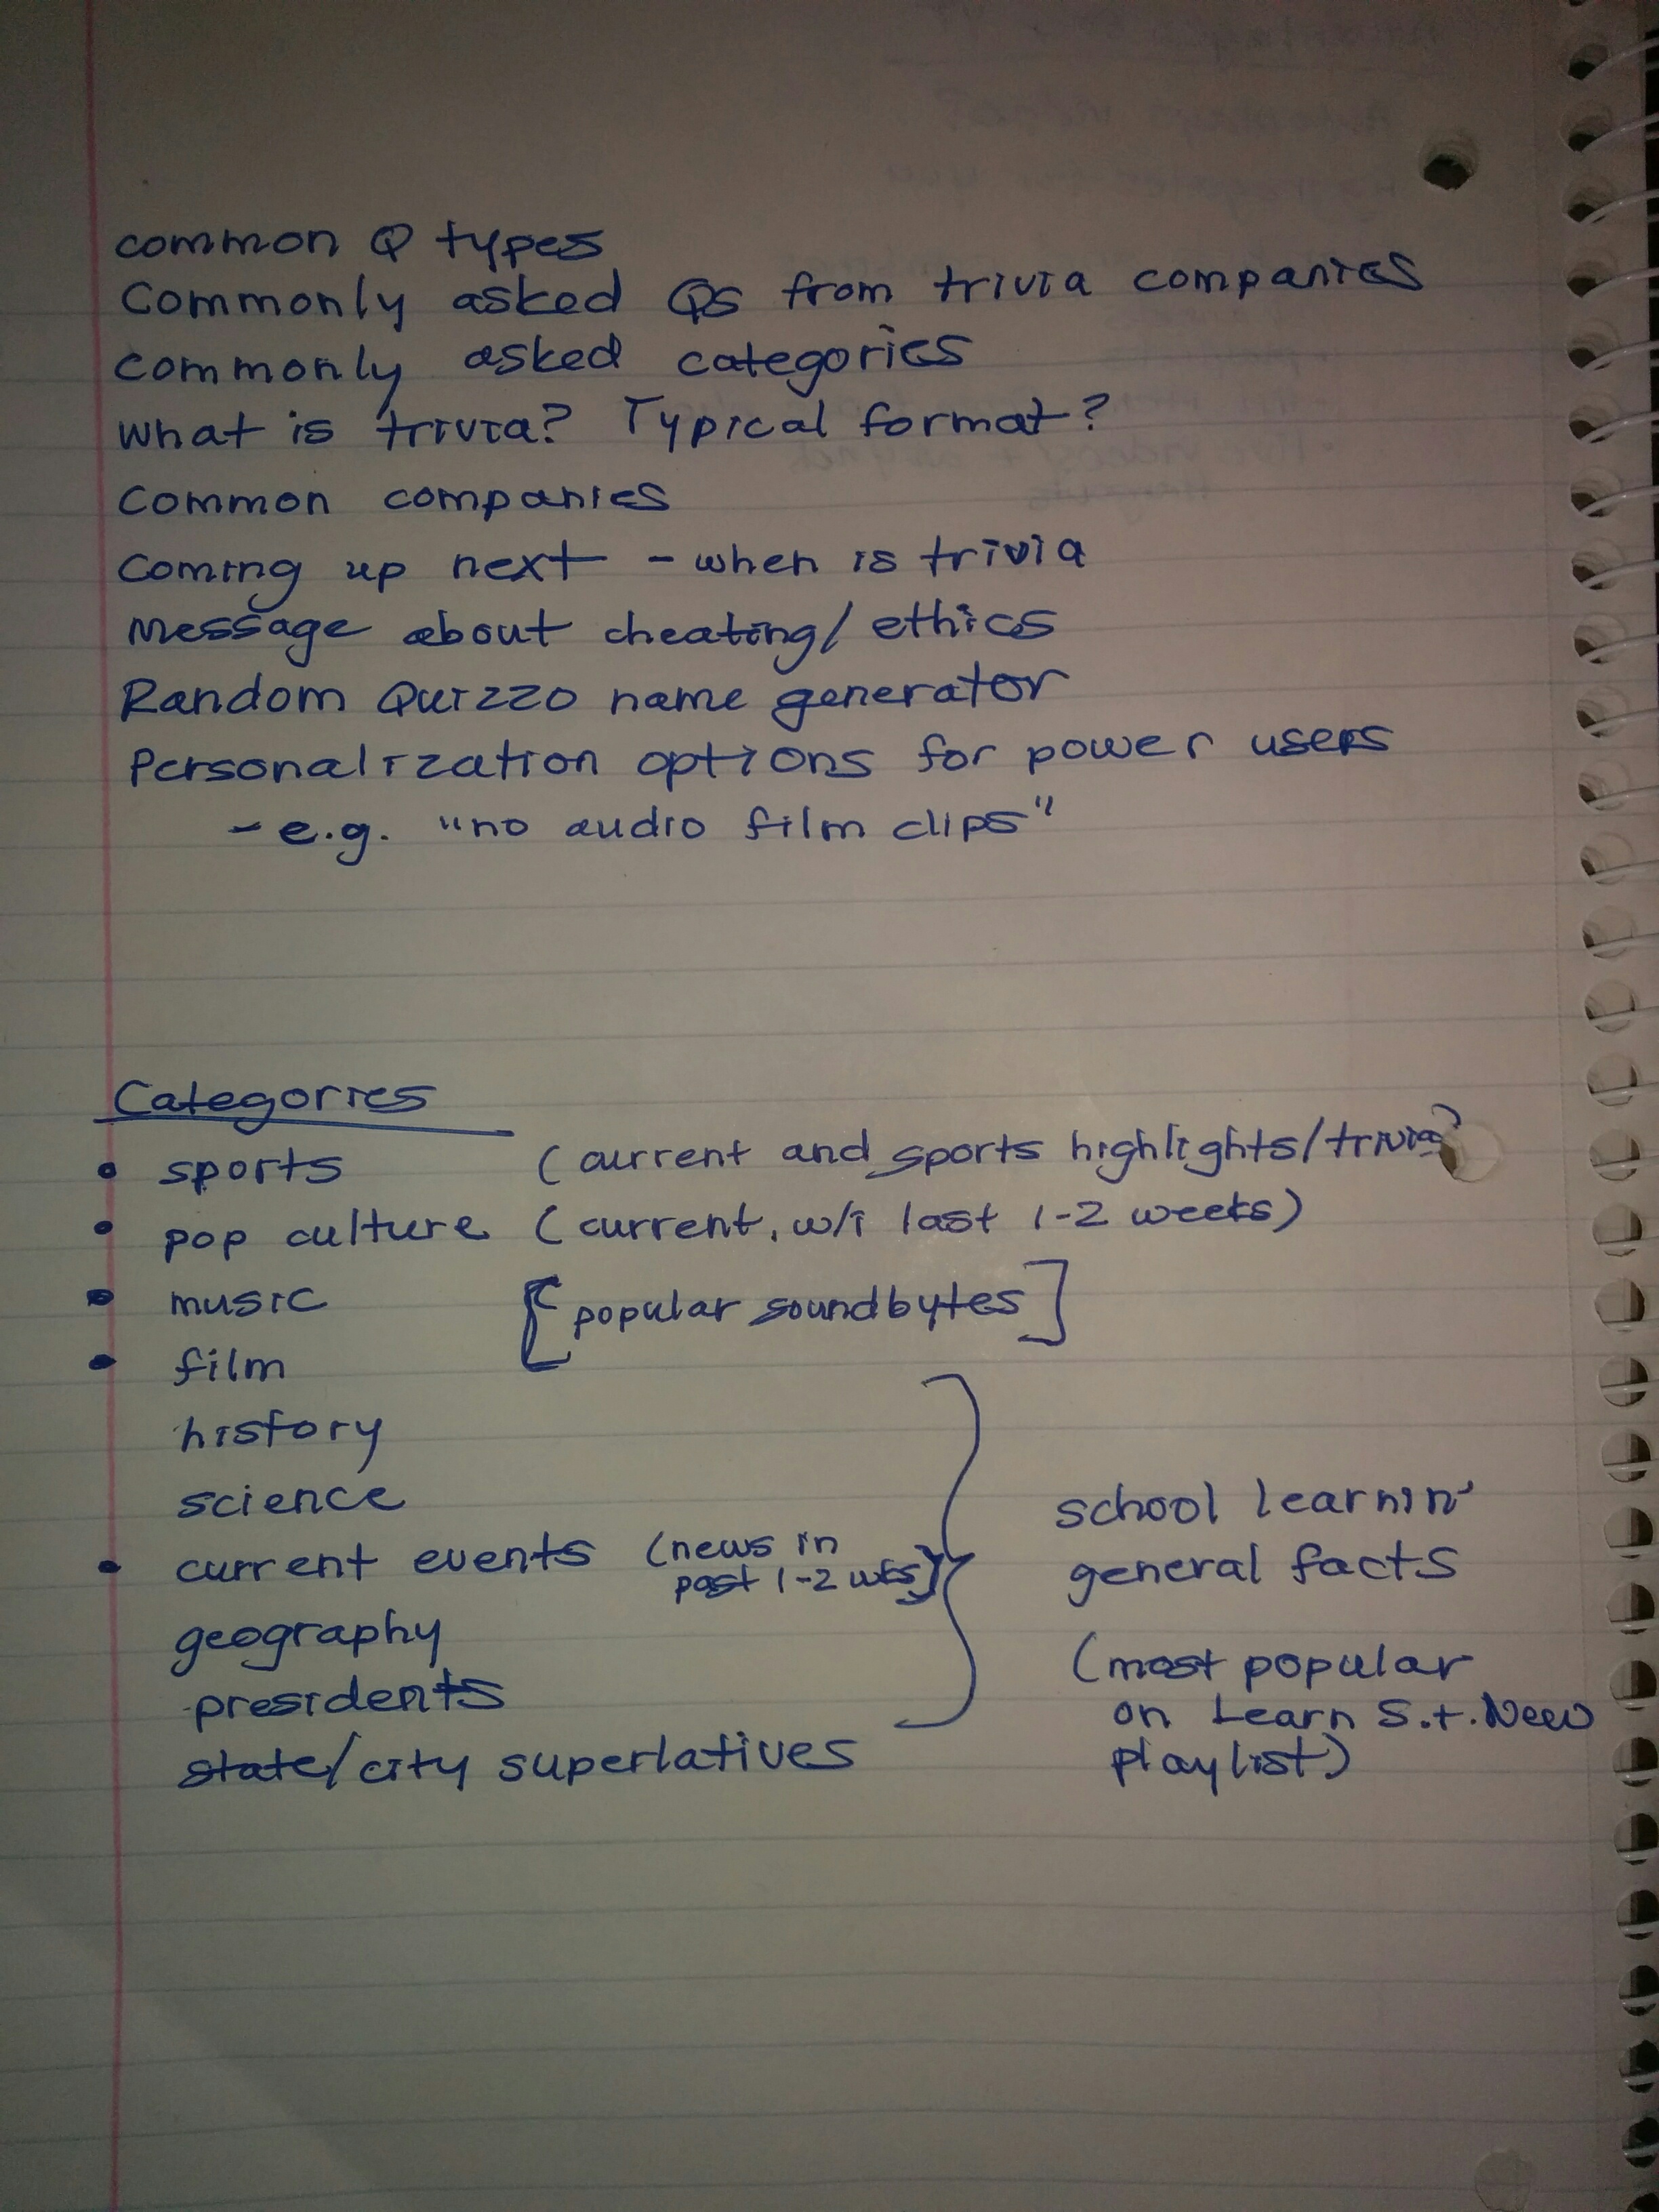 common Q types
Commonly asked Qs from trivia companies
commonly asked categories
What is trivia? Typical format?
Common companies
Coming up next - when is trivia
Message about cheating/ethics
Random Quizzo name generator
Personalization options for power users
- e.g. "no audio film clips"
Categories
• sports (current and sports highlights/trivia)
• pop culture (current, w/i last 1-2 weeks)
• music [popular soundbytes]
• film
history
science
• current events (news in
past 1-2 wks)
geography
presidents
state/city superlatives
school learnin'
general facts
(most popular
on Learn S.t. New
playlist)